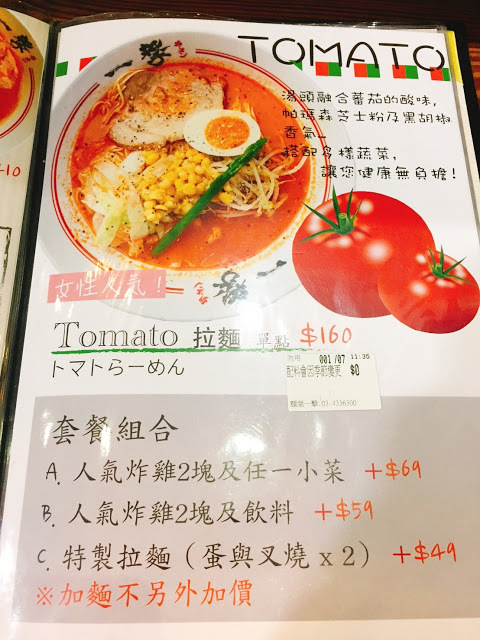 TOMATO
湯頭融合蕃茄的酸味,
帕瑪森芝士粉及黑胡椒
香氣…
搭配多樣蔬菜,
讓您健康無負擔!
10
女性人氣!
Tomato 拉麵 單點 $160
トマトらーめん
內用 001/07 11:35
配料會因季節變更 $0
麵屋一擊 03-4336300
套餐組合
A. 人氣炸雞2塊及任一小菜 +$69
B. 人氣炸雞2塊及飲料 +$59
C. 特製拉麵（蛋與叉燒 x 2） +$49
※加麵不另外加價